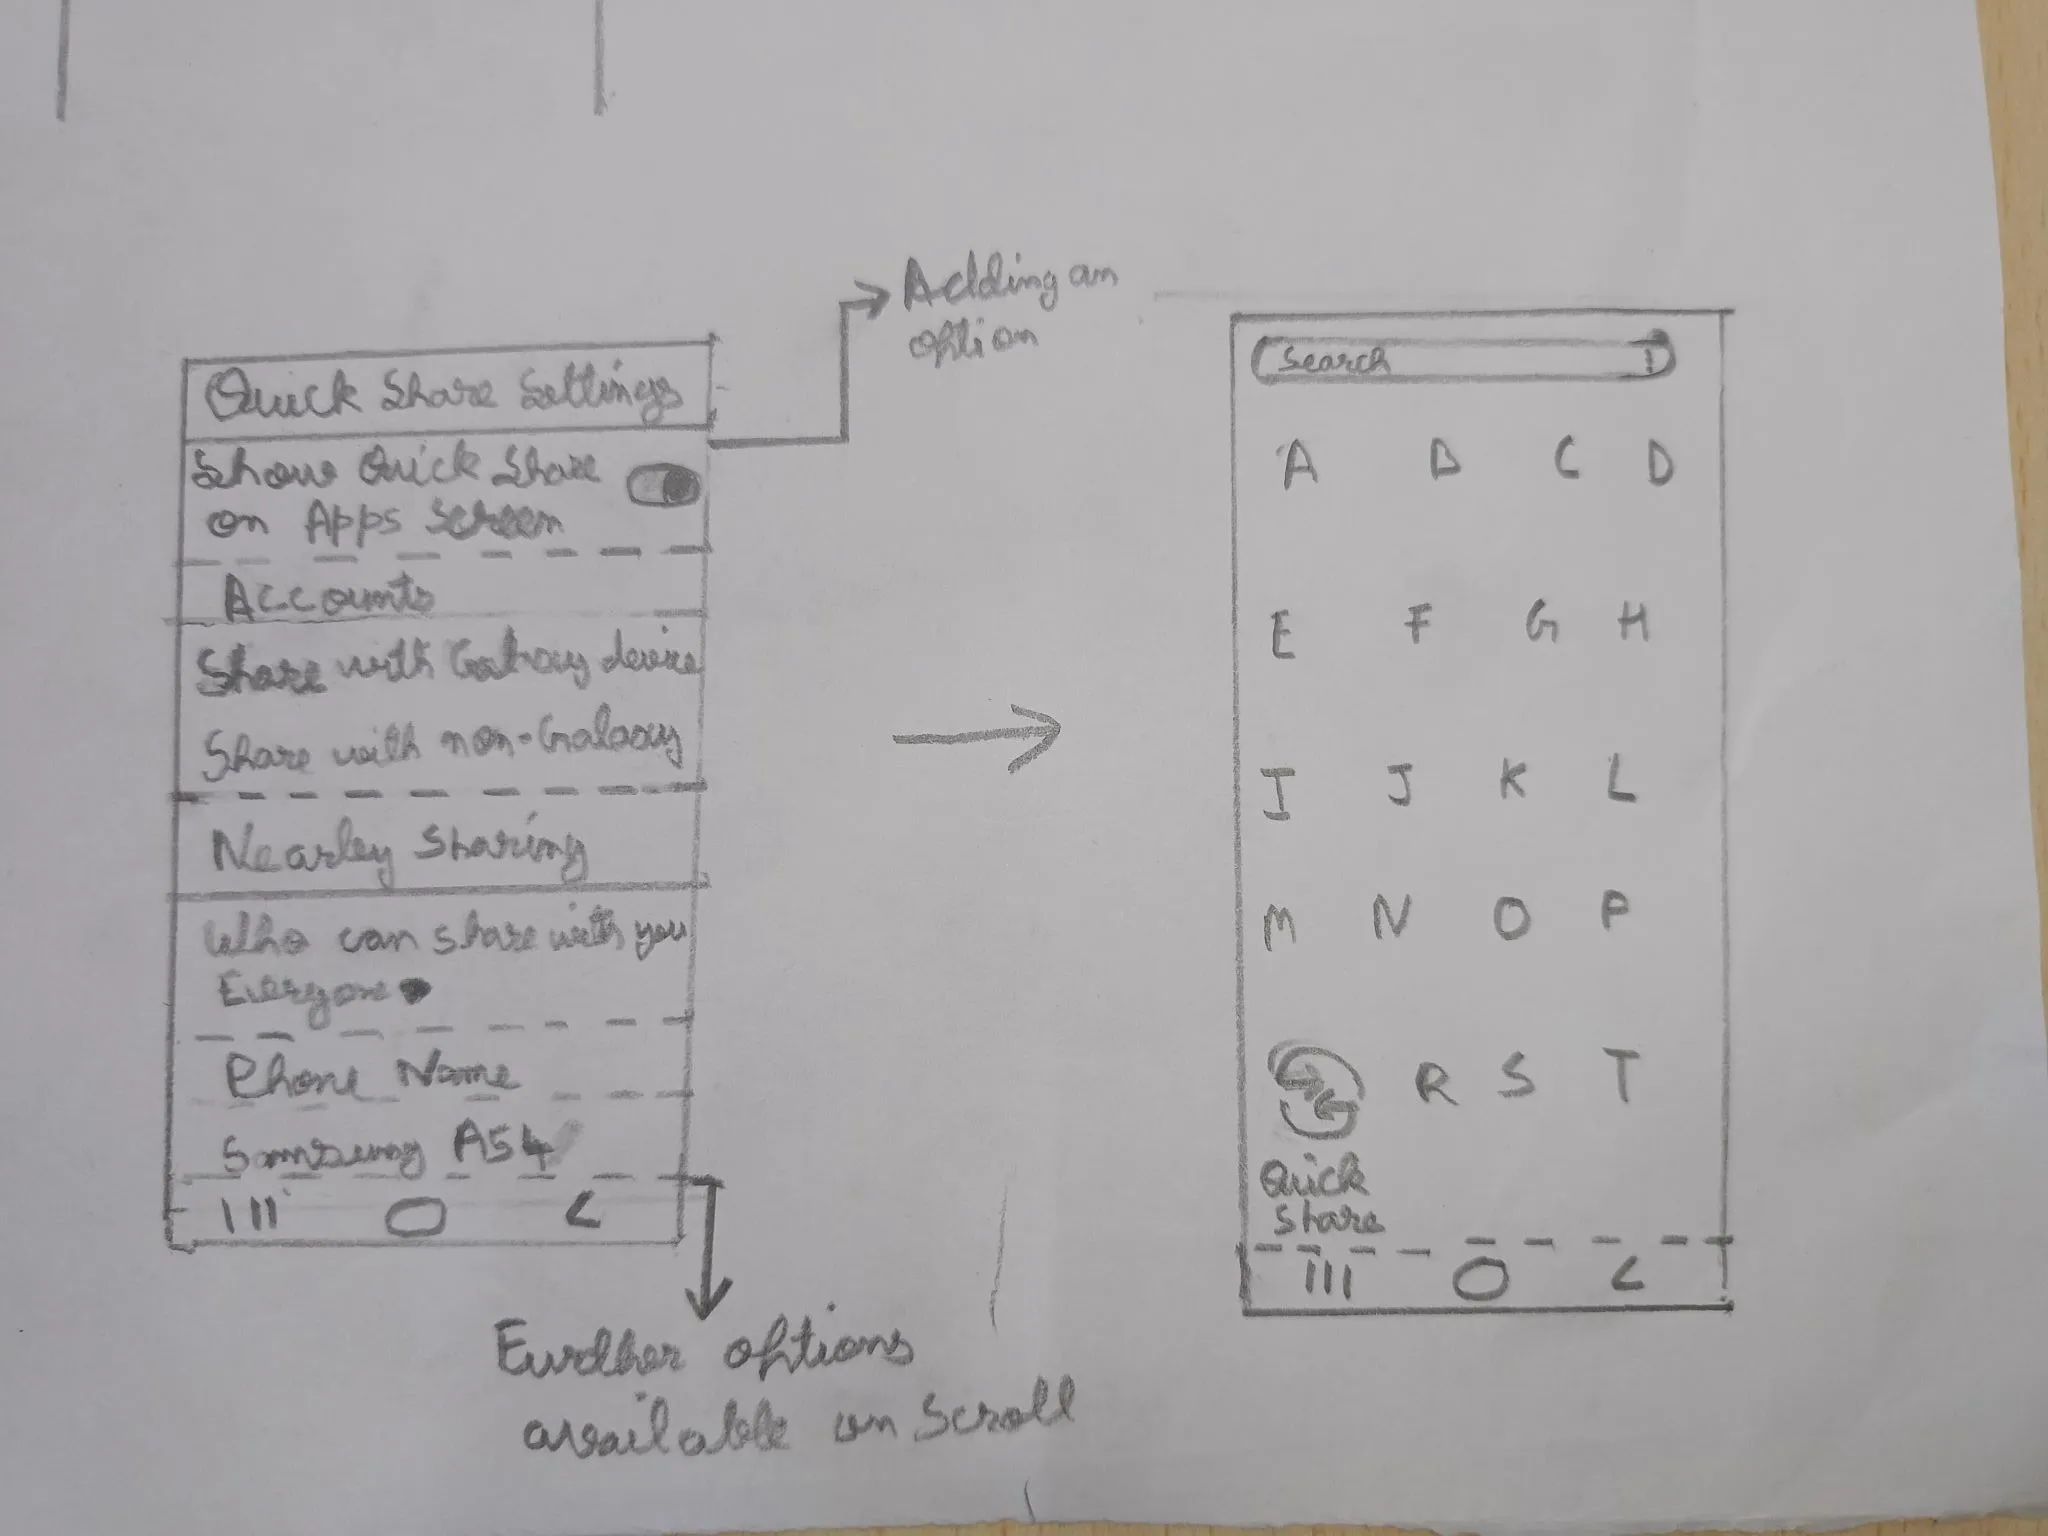 Adding an
option
Quick Share Settings
Show Quick Share
on Apps Screen
Accounts
Share with Galaxy device
Share with non-Galaxy
Nearley Sharing
Who can share with you
Everyone
Phone Name
Samsung A54
Further options
available on Scroll
Search
A B C D
E F G H
I J K L
M N O P
R S T
Quick
Share